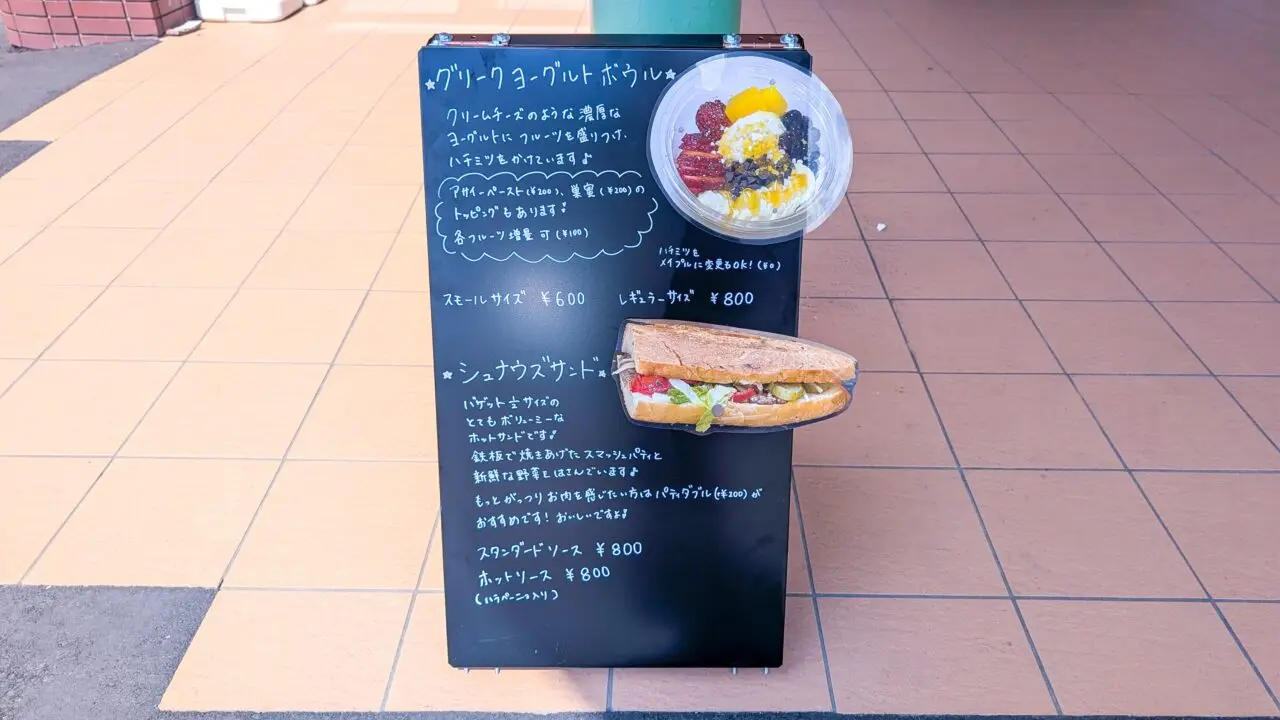 ★グリークヨーグルトボウル★
クリームチーズのような濃厚な
ヨーグルトにフルーツを盛りつけ、
ハチミツをかけています♪
アサイーペースト(¥200)、巣蜜(¥200)の
トッピングもあります♪
各フルーツ増量可(¥100)
ハチミツを
メイプルに変更もOK!(¥0)
スモールサイズ ¥600 レギュラーサイズ ¥800
★シュナウズサンド★
バゲット½サイズの
とてもボリューミーな
ホットサンドです♪
鉄板で焼きあげたスマッシュパティと
新鮮な野菜をはさんでいます♪
もっとがっつりお肉を感じたい方はパティダブル(+¥200)が
おすすめです!おいしいですよ♪
スタンダードソース ¥800
ホットソース ¥800
(ハラペーニョ入り)